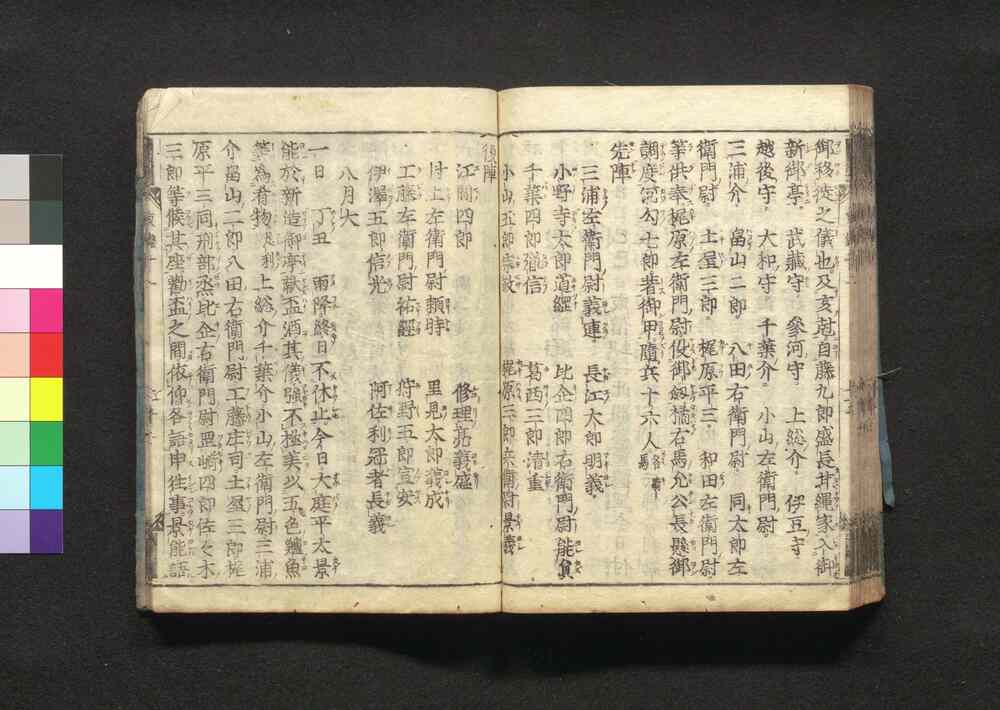 御移徙之儀也又亥尅自藤九郎盛長甘縄家入御
新御亭 武藏守 參河守 上総介 伊豆守
越後守 大和守 千葉介 小山左衛門尉
三浦介 畠山二郎 八田右衛門尉 同太郎左
衛門尉 土屋三郎 梶原平三 和田左衛門尉
等供奉梶原左衛門尉役御劔橘右馬允公長懸御
調度河勾七郎著御甲隨兵十六人各騎馬
先陣
三浦左衛門尉義連 長江太郎明義
小野寺太郎道經 比企四郎右衛門尉能員
千葉四郎胤信 葛西三郎清重
小山五郎宗政 梶原三郎兵衛尉景義
後陣
江間四郎 修理亮義盛
村上左衛門尉頼時 里見太郎義成
工藤左衛門尉祐經 狩野五郎宣安
伊澤五郎信光 阿佐利冠者長義
八月大
一日 丁丑 雨降終日不休止今日大庭平太景
能於新造御亭献盃酒其儀強不極美以五色鱸魚
等為肴物足利上総介千葉介小山左衛門尉三浦
介畠山二郎八田右衛門尉工藤庄司土屋三郎梶
原平三同刑部丞比企右衛門尉岡崎四郎佐々木
三郎等候其座勸盃之間依仰各語申往事景能語